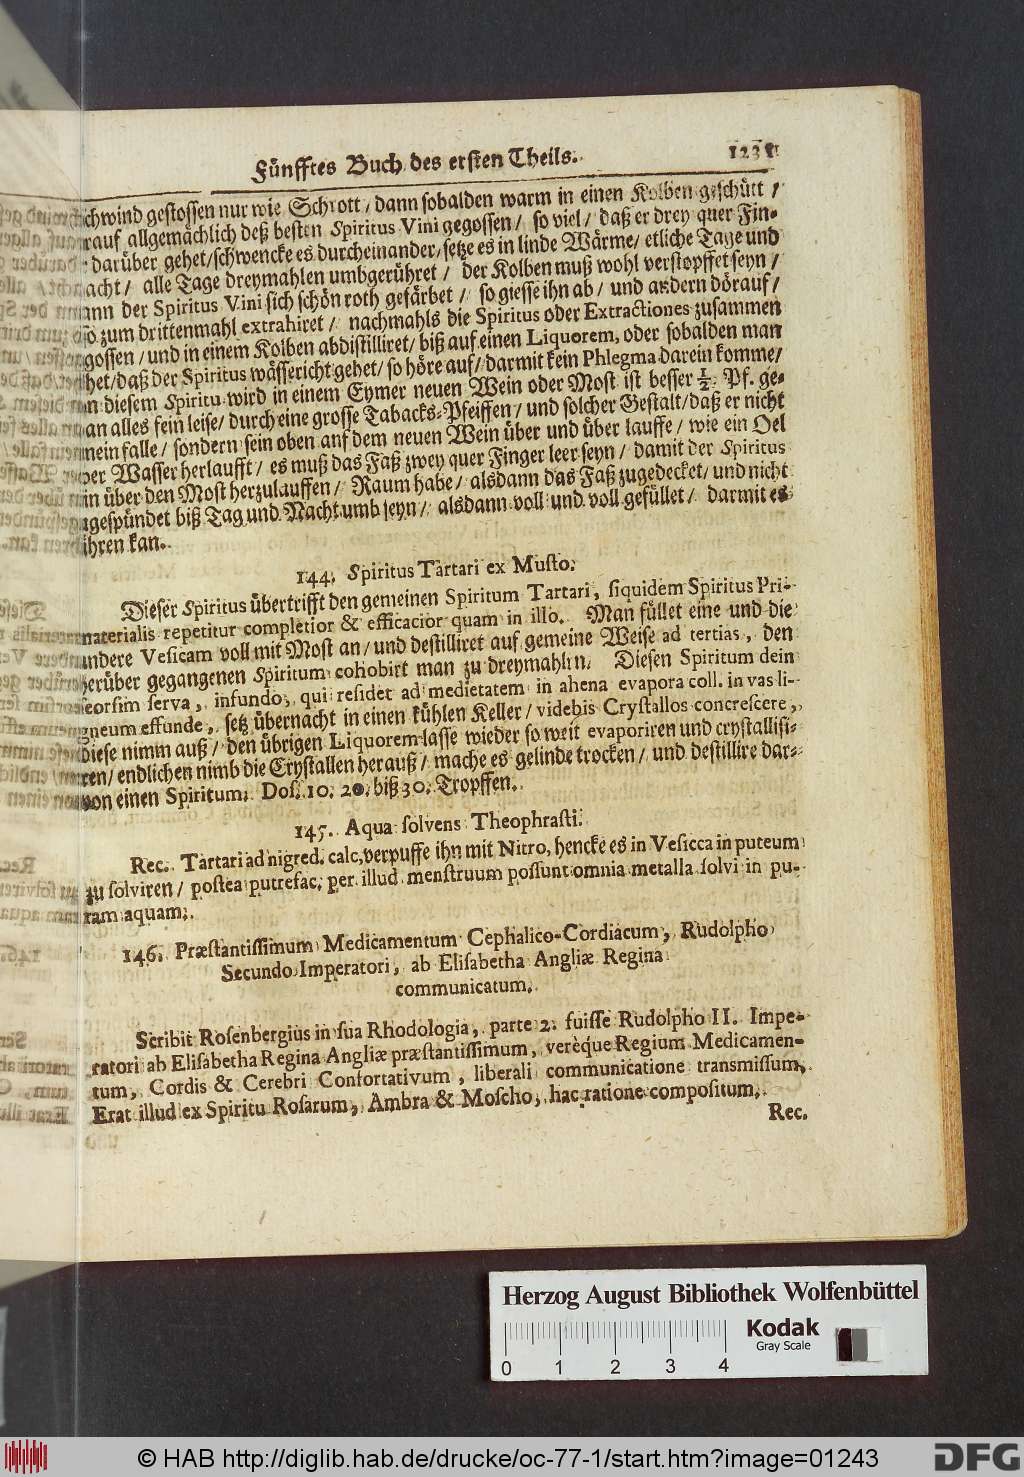 Fünfftes Buch des ersten Theils. 1231
schwind gestossen nur wie Schrott / dann sobalden warm in einen Kolben geschütt /
rauf allgemächlich deß besten Spiritus Vini gegossen / so viel / daß er drey quer Fin-
darüber gehet / schwencke es durcheinander / setze es in linde Wärme / etliche Tage und
acht / alle Tage dreymahlen umbgerühret / der Kolben muß wohl verstopffet seyn /
ann der Spiritus Vini sich schön roth gefärbet / so giesse ihn ab / und andern dörauf /
so zum drittenmahl extrahiret / nachmahls die Spiritus oder Extractiones zusammen
gossen / und in einem Kolben abdistilliret / biß auf einen Liquorem, oder sobalden man
het / daß der Spiritus wässericht gehet / so höre auf / darmit kein Phlegma darein komme /
n diesem Spiritu wird in einem Eymer neuen Wein oder Most ist besser ½. Pf. ge-
an alles fein leise / durch eine grosse Tabacks-Pfeiffen / und solcher Gestalt / daß er nicht
nein falle / sondern sein oben auf dem neuen Wein über und über lauffe / wie ein Oel
ber Wasser herlaufft / es muß das Faß zwey quer Finger leer seyn / damit der Spiritus
in über den Most herzulauffen / Raum habe / alsdann das Faß zugedecket / und nicht
gespündet biß Tag und Nacht umb seyn / alsdann voll und voll gefüllet / darmit es
ihren kan.
144. Spiritus Tartari ex Musto.
Dieser Spiritus übertrifft den gemeinen Spiritum Tartari, siquidem Spiritus Pri-
materialis repetitur completior & efficacior quam in illo. Man füllet eine und die
andere Vesicam voll mit Most an / und destilliret auf gemeine Weise ad tertias, den
herüber gegangenen Spiritum cohobirt man zu dreymahln. Diesen Spiritum dein
seorsim serva, infundo, qui residet ad medietatem in ahena evapora coll. in vas li-
gneum effunde, setz übernacht in einen kühlen Keller / videbis Crystallos concrescere,
diese nimm auß / den übrigen Liquorem lasse wieder so weit evaporiren und crystallisi-
ren / endlichen nimb die Crystallen herauß / mache es gelinde trocken / und destillire dar-
von einen Spiritum. Dos. 10. 20. biß 30. Tropffen.
145. Aqua solvens Theophrasti.
Rec. Tartari ad nigred. calc. verpuffe ihn mit Nitro, hencke es in Vesicca in puteum
zu solviren / postea putrefac. per illud menstruum possunt omnia metalla solvi in pu-
ram aquam.
146. Præstantissimum Medicamentum Cephalico-Cordiacum, Rudolpho
Secundo Imperatori, ab Elisabetha Angliæ Regina
communicatum.
Scribit Rosenbergius in sua Rhodologia, parte 2. fuisse Rudolpho II. Impe-
ratori ab Elisabetha Regina Angliæ præstantissimum, verèque Regium Medicamen-
tum, Cordis & Cerebri Confortativum, liberali communicatione transmissum,
Erat illud ex Spiritu Rosarum, Ambra & Moscho, hac ratione compositum.
Rec.
Herzog August Bibliothek Wolfenbüttel
Kodak
Gray Scale
0 1 2 3 4
© HAB http://diglib.hab.de/drucke/oc-77-1/start.htm?image=01243
DFG